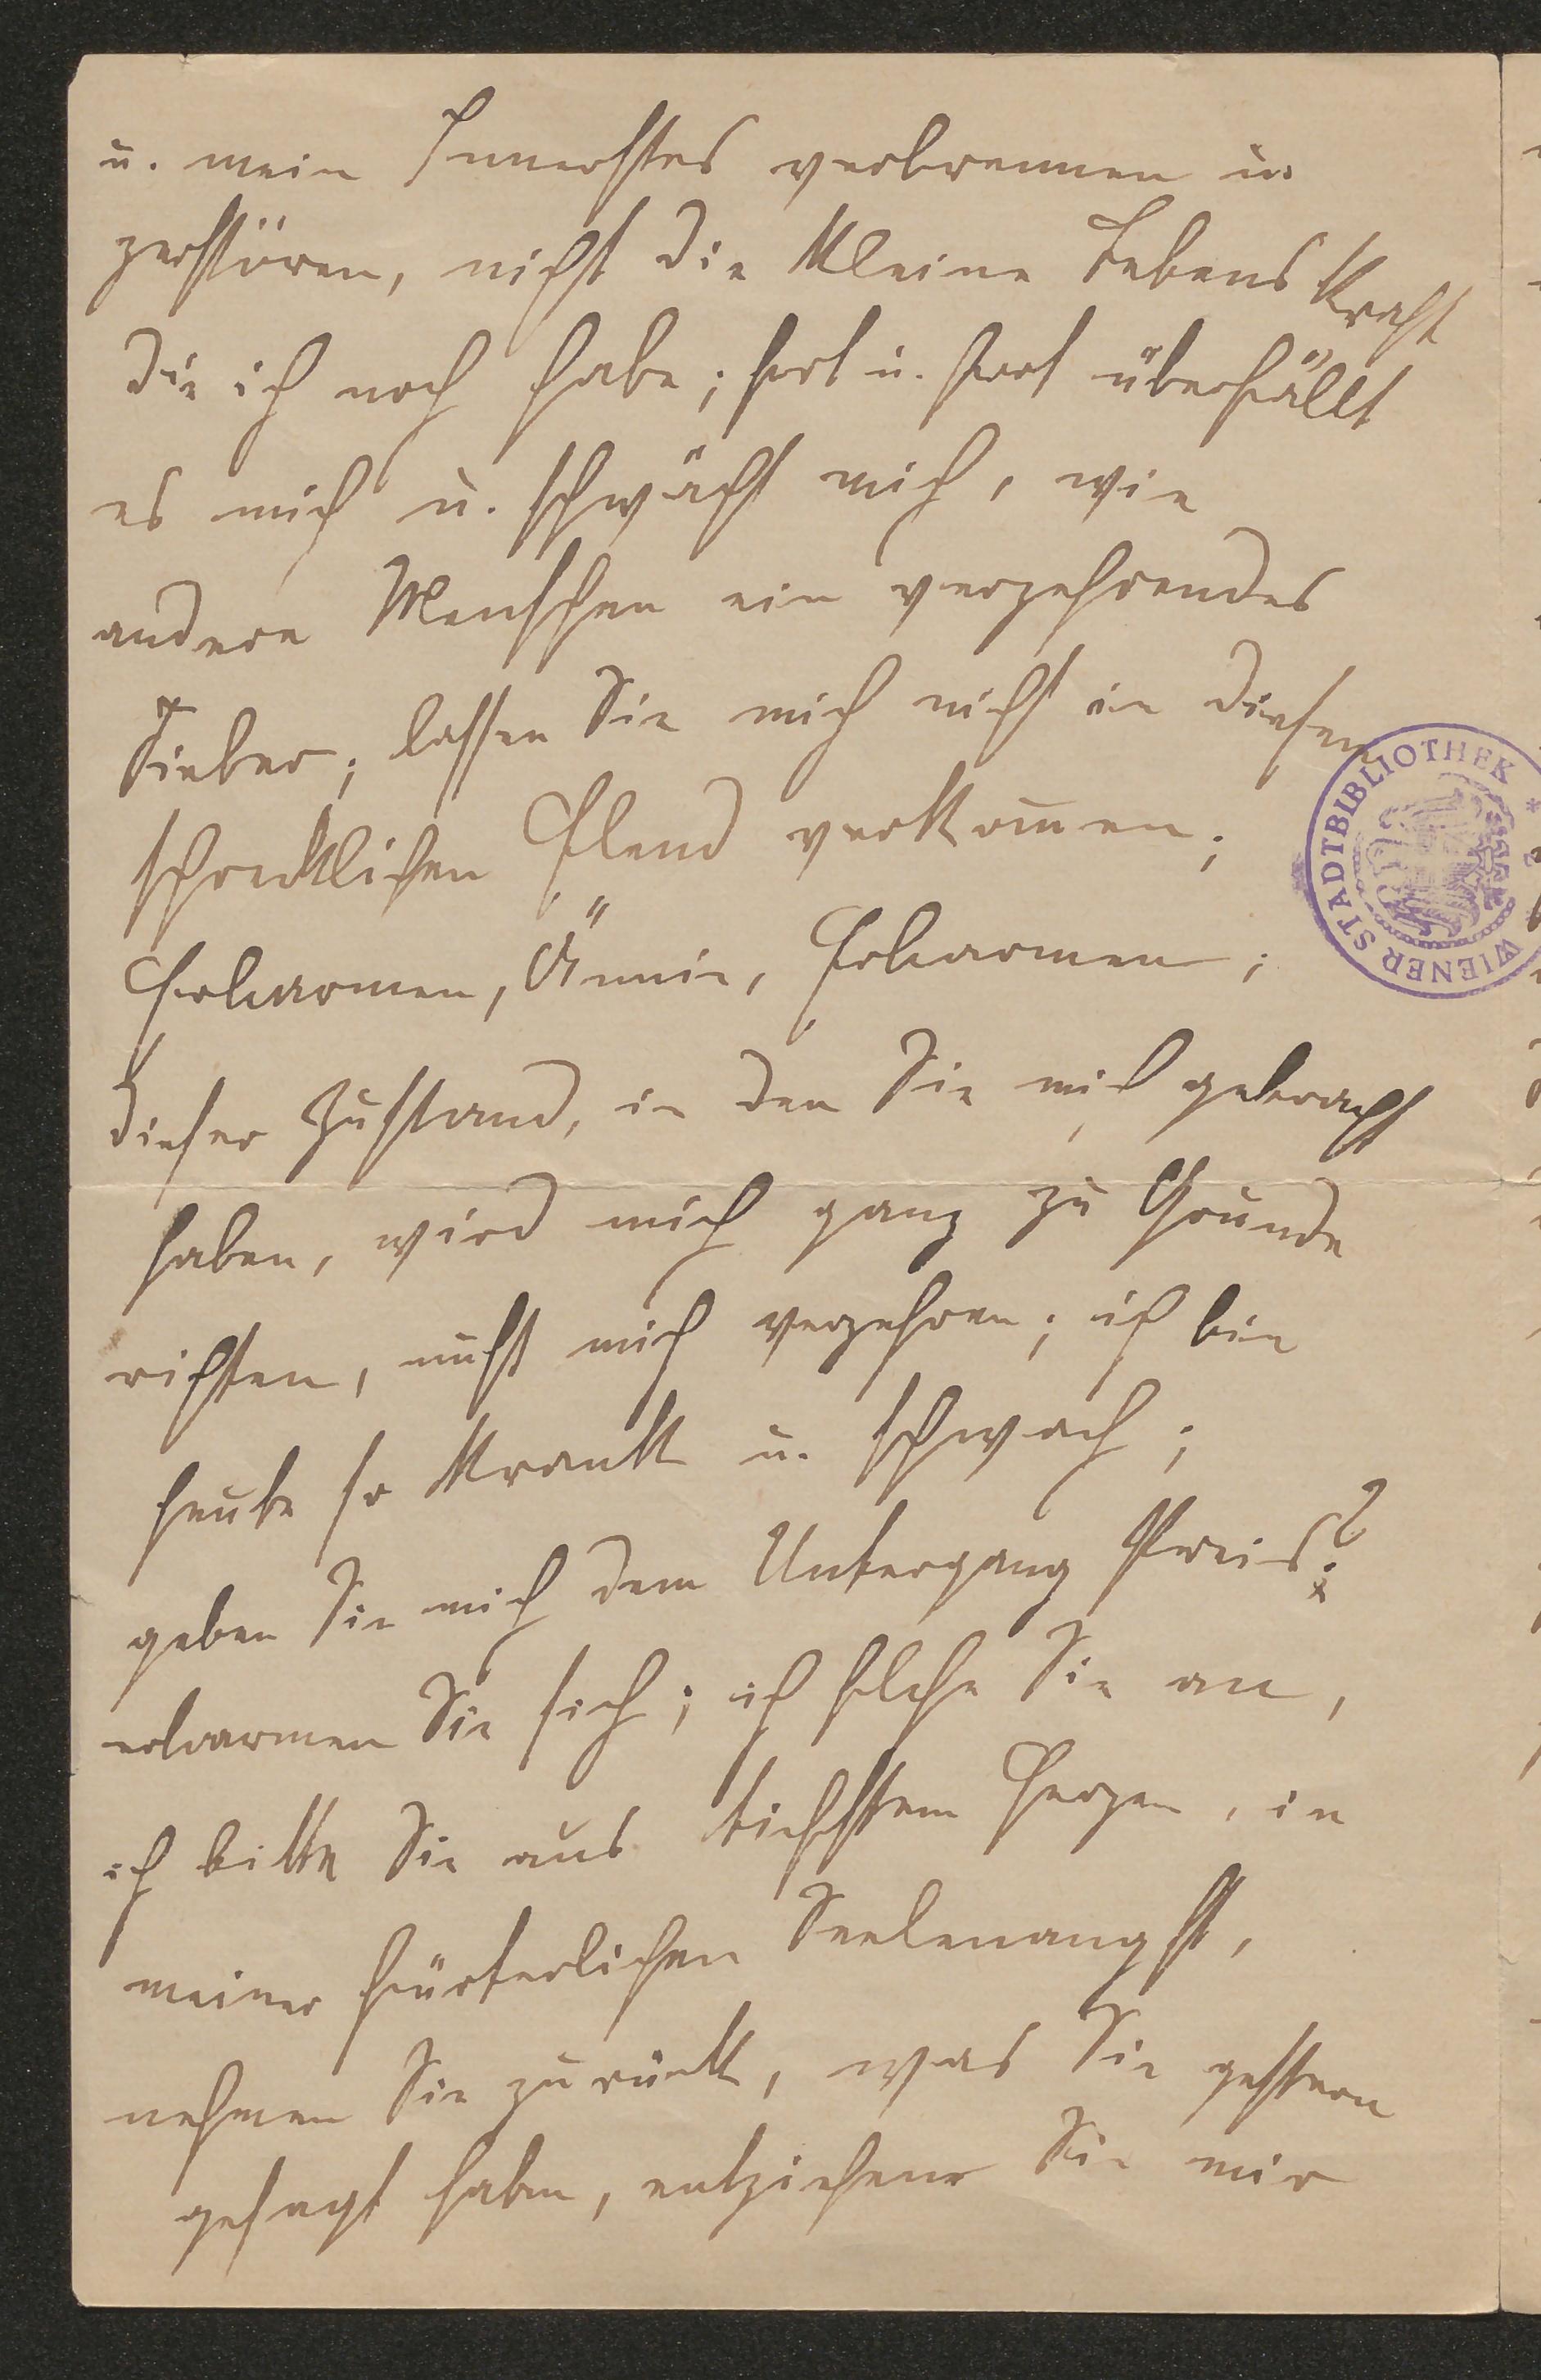 u. mein Innerstes verbrennen u.
zerstören, nicht die kleine Lebenskraft
die ich noch habe; fort u. fort überfällt
es mich u. schwächt mich, wie
andere Menschen ein verzehrendes
Fieber; lassen Sie mich nicht in diesem
schrecklichen Elend verkom̅en;
Erbarmen, Ännie, Erbarmen;
dieser Zustand, in den Sie mich gebracht
haben, wird mich ganz zu Grunde
richten, muß mich verzehren; ich bin
heute so krank u. schwach;
geben Sie mich dem Untergang Preis?
erbarmen Sie sich; ich flehe Sie an,
ich bitte Sie aus tiefstem Herzen, in
meiner fürterlichen Seelenangst,
nehmen Sie zurück, was Sie gestern
gesagt haben, entziehen Sie mir
WIENER STADTBIBLIOTHEK *